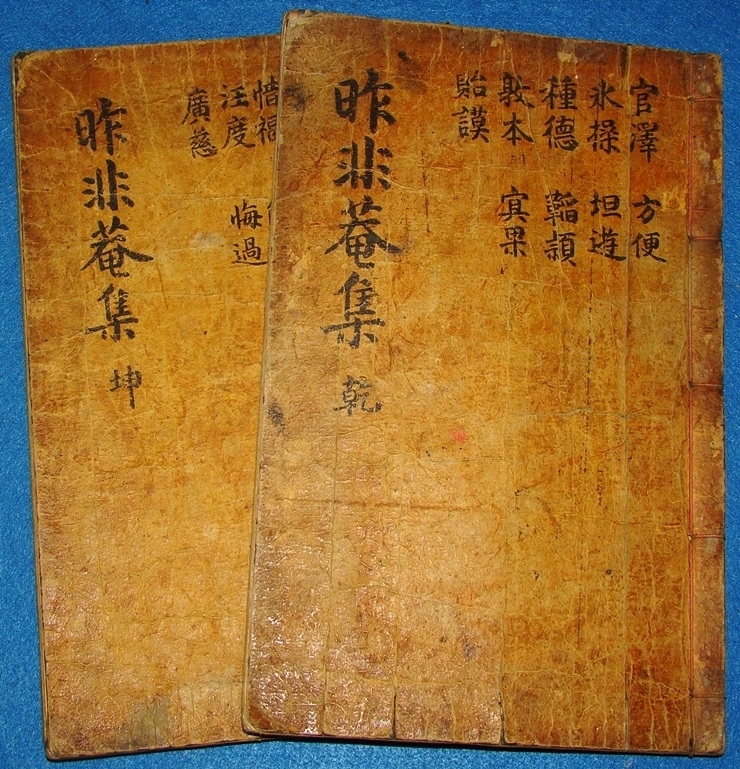 官澤 方便
氷操 坦遊
種德 韜頴
敦本 㝠果
貽謨
昨非菴集 乾
惜福
汪度 悔過
廣慈
昨非菴集 坤